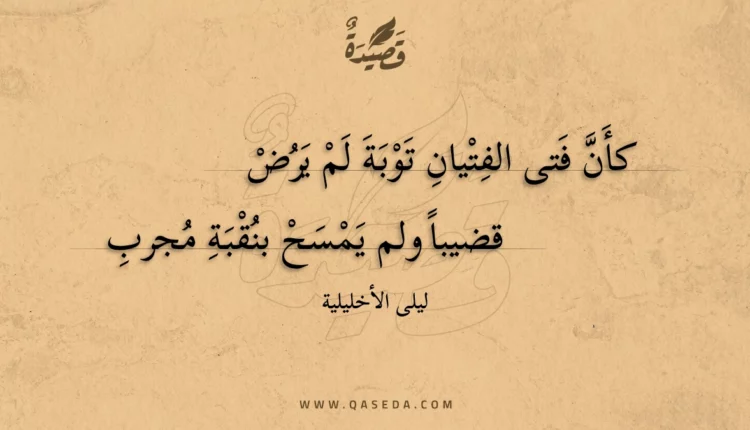 قَصِيْدَةٌ
كأَنَّ فَتى الفِتْيانِ تَوْبَةَ لَمْ يَرُضْ
قضيباً ولم يَمْسَحْ بنُقْبَةِ مُجربِ
ليلى الأخليلية
WWW.QASEDA.COM